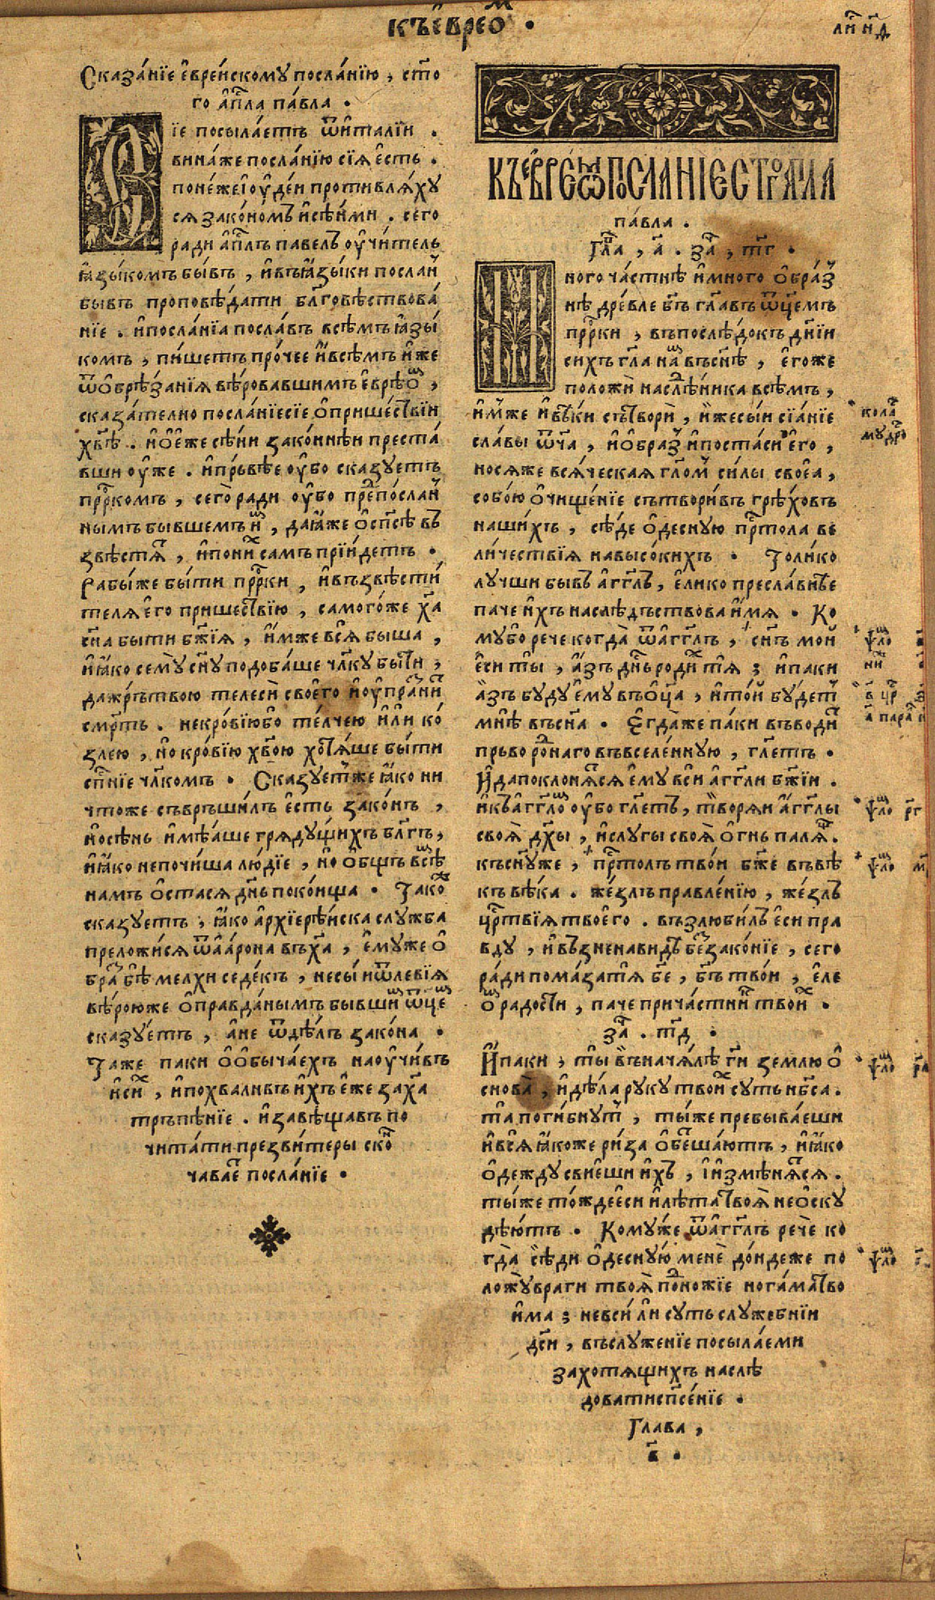 къ е҆вреѡ҃м .
ли҃ н҃д
Сказа́нїе е҆вре́йскому посла́нїю , ст҃о
го а҆п҃ла па́вла .
Сїе посыла́етъ ѿ и҆талїи .
вина́ же посла́нїю сїѧ́ е҆сть .
поне́же і҆оу҆де́и противлѧ́ху
сѧ зако́номъ и҆ сѣ́ньми . сего̀
ради а҆п҃лъ павелъ оу҆чи́тель
ꙗ҆зы́комъ бы́въ , и҆ въ ꙗ҆зы́ки посла́н
бывъ проповѣ́дати бл҃говѣствова́
нїе . и҆ посла́нїа посла́въ всѣ́мъ ꙗ҆зы́
комъ , пи́шетъ про́чее и҆ всѣ́мъ и҆́же
ѿ о҆брѣ́занїѧ вѣ́ровавшимъ е҆вре́ѡм ,
сказа́телно посла́нїе сїе о҆ прише́ствїи
хв҃ѣ . и҆ о҆ е҆́же сѣ́ни зако́ннѣи преста́
вши оу҆же . и҆ пръвѣе оу҆бо сказуетъ
пр҃ркомъ , сего̀ ради оу҆бо пре́пⷣосла́н
нымъ бывшем ,  да ꙗ҆́же о҆ сп҃сѣ въ
звѣстѧ́т , и҆ по ни́х самъ прїи́детъ .
Рабы́ же бы́ти пр҃рки , и҆ възвѣсти́
телѧ е҆го̀ прише́ствїю , самого́ же х҃а
сн҃а быти бж҃їѧ , и҆́мже всѧ̀ быша ,
и҆ ꙗ҆́ко сему̀ сн҃у подоба́ше чл҃ку бы́ти ,
да жръ́твою телесѝ своего̀ и҆ оу҆праздни́т
см҃рть . не кро́вїю бо те́лчею и҆лѝ ко́
злею , но кро́вїю хв҃ою хотѧ́ше бы́ти
сп҃нїе чл҃комъ . Сказуе́т же ꙗ҆́ко ни
что́же съвръши́лъ е҆сть зако́нъ ,
но сѣнь и҆мѣ́аше грѧду́щихъ бл҃гъ ,
и҆ ꙗ҆́ко не почи́ша лю́дїе , но о҆́бщъ всѣ̀м
намъ о҆ста́сѧ дн҃ь поко́ища . Та́ко
сказуетъ , ꙗ҆́ко а҆рхїере́йска слу́жба
преложи́сѧ ѿ а҆а́рона въ х҃а , е҆муже о҆́
бразъ бѣ̀ мелхиседе́къ , не сы́и ѿ левїѧ
вѣ́рою же о҆правда́нымъ бывшим ѿце́м
сказу́етъ , а҆ не ѿ дѣлъ зако́на .
Та́же паки о҆ о҆бы́чаехъ нао҆учи́въ
и҆ си́х , и҆ похва́ливъ и҆́хъ е҆́же за х҃а
тръпѣ́нїе . и҆ завѣща́въ по
чита́ти презви́теры ско́н
чава́ет посла́нїе .
КЪ ЕВРЕѠМ ПОСЛАНІЕ СТ҃ГО АП҃ЛА
па́вла .
Гл҃а , а҃ . за҃ , т҃г .
Много ча́стнѣ и҆ много о҆бра́з
нѣ дре́вле бг҃ъ гл҃авъ ѿц҃емъ
пр҃рки , въ послѣ́докъ дн҃їи
сихъ гл҃а на́м въ сн҃ѣ , е҆го́же
положѝ наслѣ́дника всѣмъ ,
и҆́мже и҆ вѣ́ки сътворѝ , и҆́же сы́и сїа́нїе
сла́вы ѿч҃а , и҆ о҆́браз и҆поста́си е҆го̀ ,
носѧ́ же всѧ́ческаа гл҃ом си́лы своеа̀ ,
собо́ю о҆чище́нїе сътвори́въ грѣхо́въ
на́шихъ , сѣ́де о҆десну́ю пр҃тола ве
ли́чествїѧ на высо́кихъ . Толико
лу́чши бывъ а҆гг҃лъ , е҆ли́ко пресла́внѣе
паче и҆́хъ наслѣ́дъствова и҆́мѧ . Ко
му́ бо рече когда̀ ѿ а҆гг҃лъ , сн҃ъ мо́й
е҆сѝ ты̀ , а҆́зъ дн҃ь роди́х тѧ ; и҆ паки
а҆́зъ буду е҆му въ о҆ц҃а , и҆ то́й бу́дет
мнѣ̀ въ сн҃а . Е҆гда́ же паки въво́дит
пръворо́днаго въ вселе́нную , гл҃етъ .
И҆ да покло́нѧтсѧ е҆му̀ вси а҆гг҃ли бж҃їи .
и҆ къ а҆гг҃лом оу҆́бо гл҃етъ , творѧ́и а҆́гг҃лы
своѧ̀ дх҃ы , и҆ слугы своѧ̀ о҆́гнь палѧ́щ .
къ сн҃у же , пр҃толъ тво́й бж҃е въ вѣ́
къ вѣ́ка . же́злъ правле́нїю , же́злъ
цр҃твїѧ твоего̀ . възлюби́лъ е҆сѝ пра
вду , и҆ възненави́дѣ без̾зако́нїе , сего̀
ра́ди пома́за тѧ̀ бж҃е , бг҃ъ тво́й , е҆ле
ом ра́дости , паче прича́стник твои́х .
за҃ . т҃д .
И҆ паки , ты̀ въ нача́лѣ гд҃и зе́млю о҆
снова́ , и҆ дѣ́ла руку твое́ю су́ть нб҃са .
та̀ поги́бнут , ты́ же пребыва́еши
и҆ всѧ̀ ꙗ҆́коже ри́за о҆беща́ютъ , и҆ ꙗ҆́ко
о҆де́жду свие́ши и҆́хъ , и҆ и҆змѣнѧ́тсѧ .
ты́ же то́жде е҆сѝ и҆ лѣ́та твоѧ̀ не о҆ску
дѣ́ютъ . Кому́ же ѿ а҆гг҃лъ рече ко
гда̀ сѣди о҆десну́ю менѐ до́ндеже по
ложу̀ враги́ твоѧ̀ подно́жїе нога́ма тво
и҆́ма ; не всѝ ли су́ть служе́бнїи
дс҃и , въ служе́нїе посыла́еми
за хотѧ́щихъ наслѣ́
довати сп҃се́нїе .
Глава ,
в҃ .
кола́с
мудро
ѱло́м
ѱло́м р҃г
ѱло́м
ѱло́м
ѱло́м